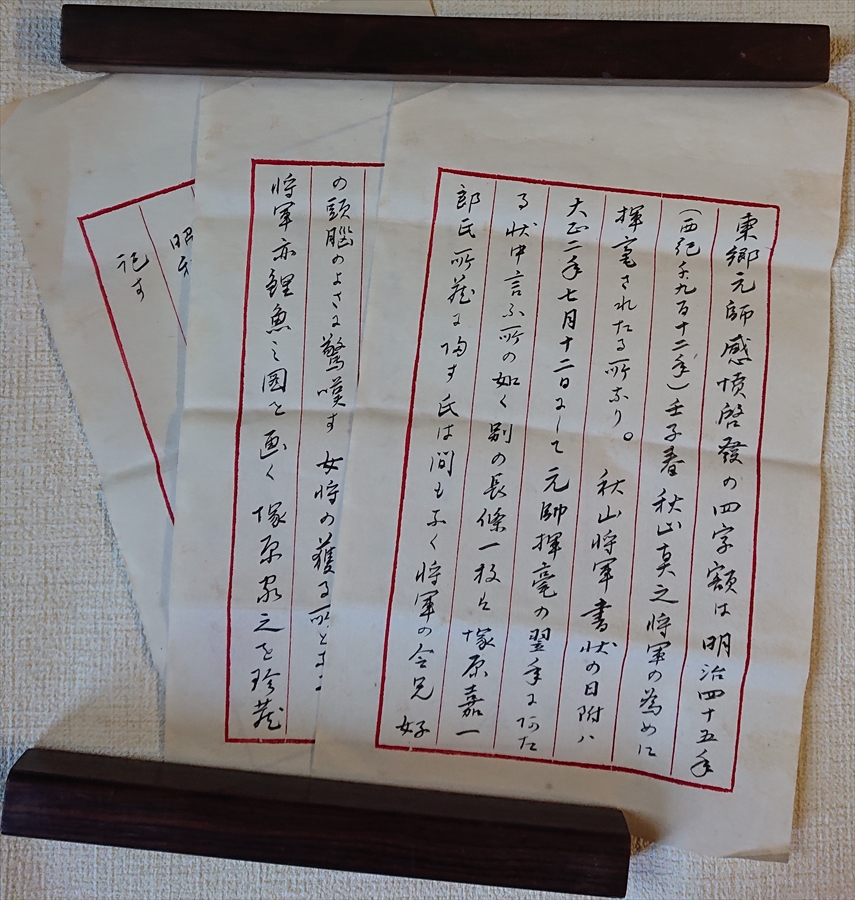 東郷元帥感憤啓發の四字額は明治四十五年
（西紀千九百十二年）壬子春秋山真之将軍の為めに
揮毫されたる所なり。秋山将軍書状の日附ハ
大正二年七月十二日にして元帥揮毫の翌年にあた
る状中言ふ所の如く別の長條一枚は塚原嘉一
郎氏所蔵に帰す氏は間もなく将軍の令兄好
の頭腦のよさに驚嘆す女将の獲る所となる
将軍亦鯉魚之図を画く塚原家之を珍蔵
昭和
記す